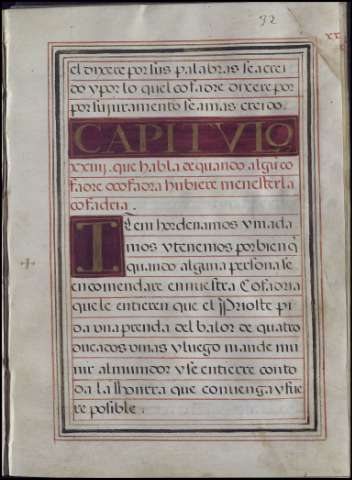 32
el dixere por sus palabras sea crei
do y por lo quel cofadre dixere por
por su juramento se a mas creido.
CAPITVLO
xxiiii. que habla de quando algũ co
fadre o cofadra hubiere menester la
cofadria.
ITẽ hordenamos y mãda
mos y tenemos por bien q̃
quando alguna persona se
encomendare en nuestra Cofadria
que le entieren que el Prioste pi
da una prenda del balor de quatro
ducados o mas y luego mande mu
nir al muñidor y se entierre con to
da la honrra que convenga y fue
re posible.